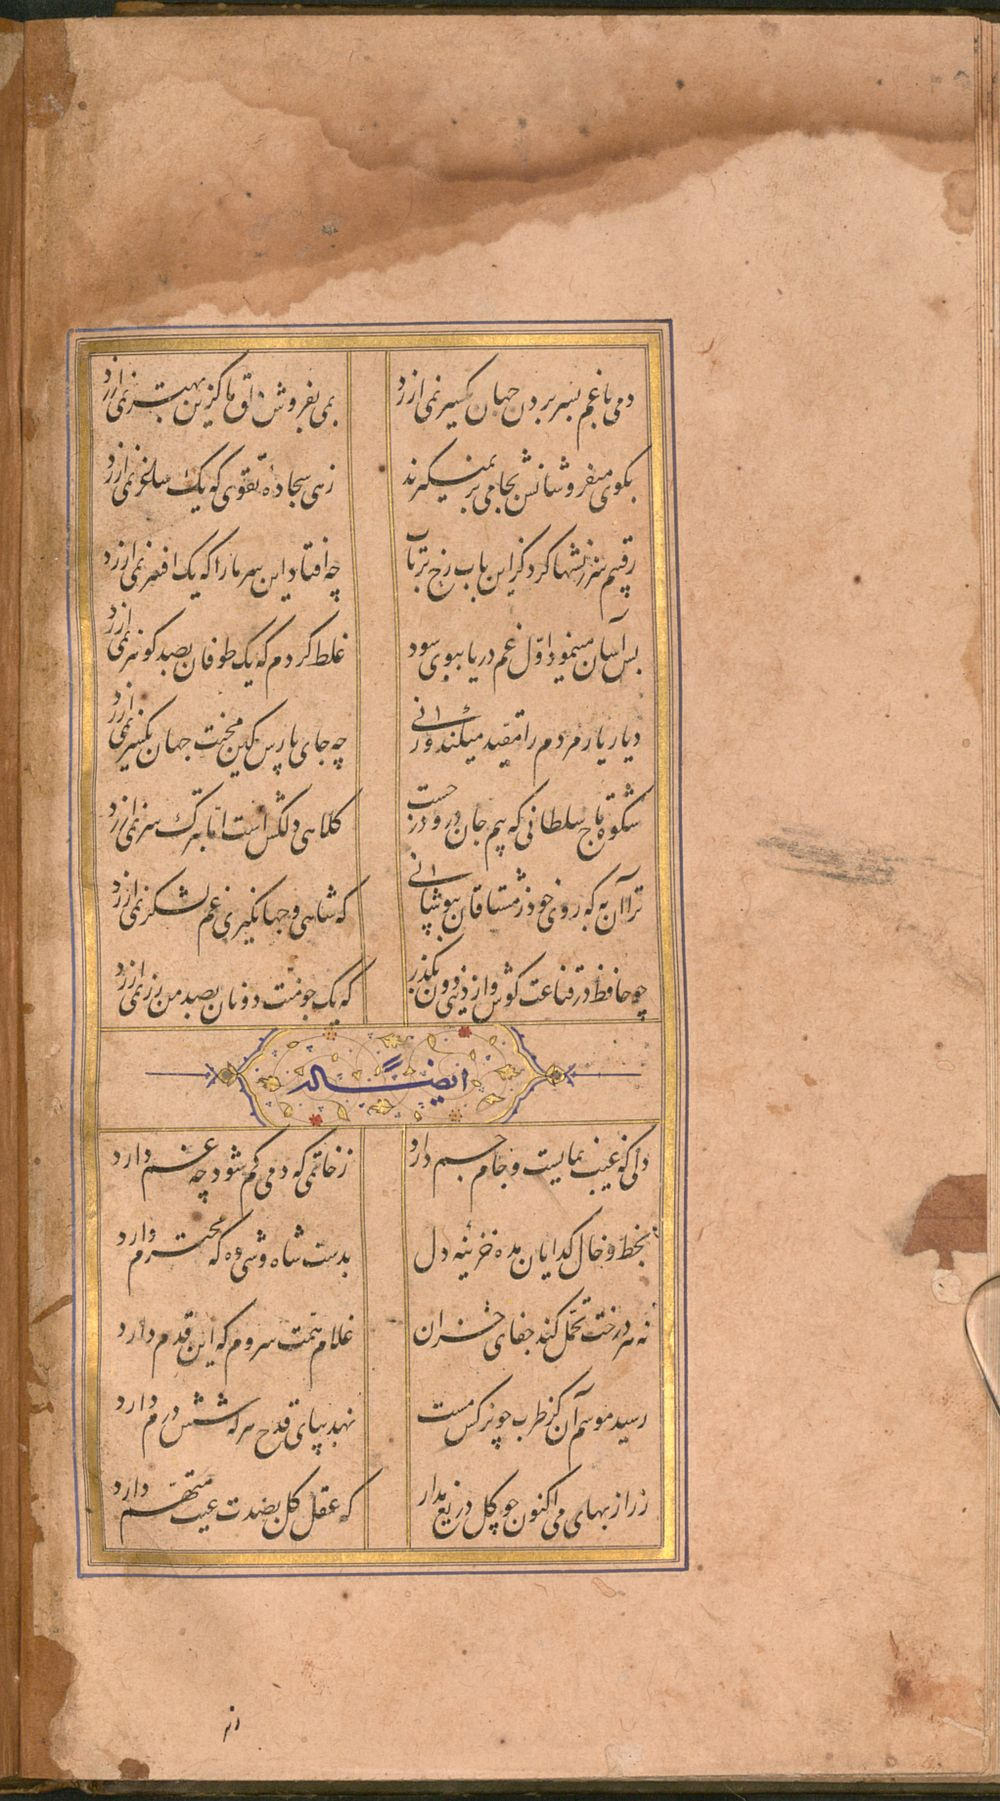 دمی با غم بسر بردن جهان یکسر نمی ارزد بمی بفروش دلق ما کزین بهتر نمی ارزد
بکوی میفروشانش بجامی بر نمیگیرند زهی سجاده تقوی که یک ساغر نمی ارزد
رقیبم سرزنشها کرد کز این باب رخ برتاب چه افتاد این سر ما را که یک افسر نمی ارزد
بس آسان مینمود اول غم دریا ببوی سود غلط کردم که یک طوفان بصد کوهر نمی ارزد
دیار یار مردم را مقید میکند ورنی چه جای پارس کین محنت جهان یکسر نمی ارزد
شکوه تاج سلطانی که بیم جان درو درجست کلاهی دلکش است اما بترک سر نمی ارزد
ترا آن به که روی خود ز مشتاقان بپوشانی که شاهی و جهانگیری غم لشکر نمی ارزد
چو حافظ در قناعت کوش و از دنیی دون بگذر که یک جو منت دونان بصد من زر نمی ارزد
ایضا له
دلی که غیب نمایست و جام جم دارد ز خاتمی که دمی گم شود چه غم دارد
بخط و خال گدایان مده خزینه دل بدست شاه وشی ده که محترم دارد
نه هر درخت تحمل کند جفای خزان غلام همت سروم که این قدم دارد
رسید موسم آن کز طرب چو نرگس مست نهد بپای قدح هر که شش درم دارد
زر از بهای می اکنون چو گل دریغ مدار که عقل کل بصدت عیب متهم دارد